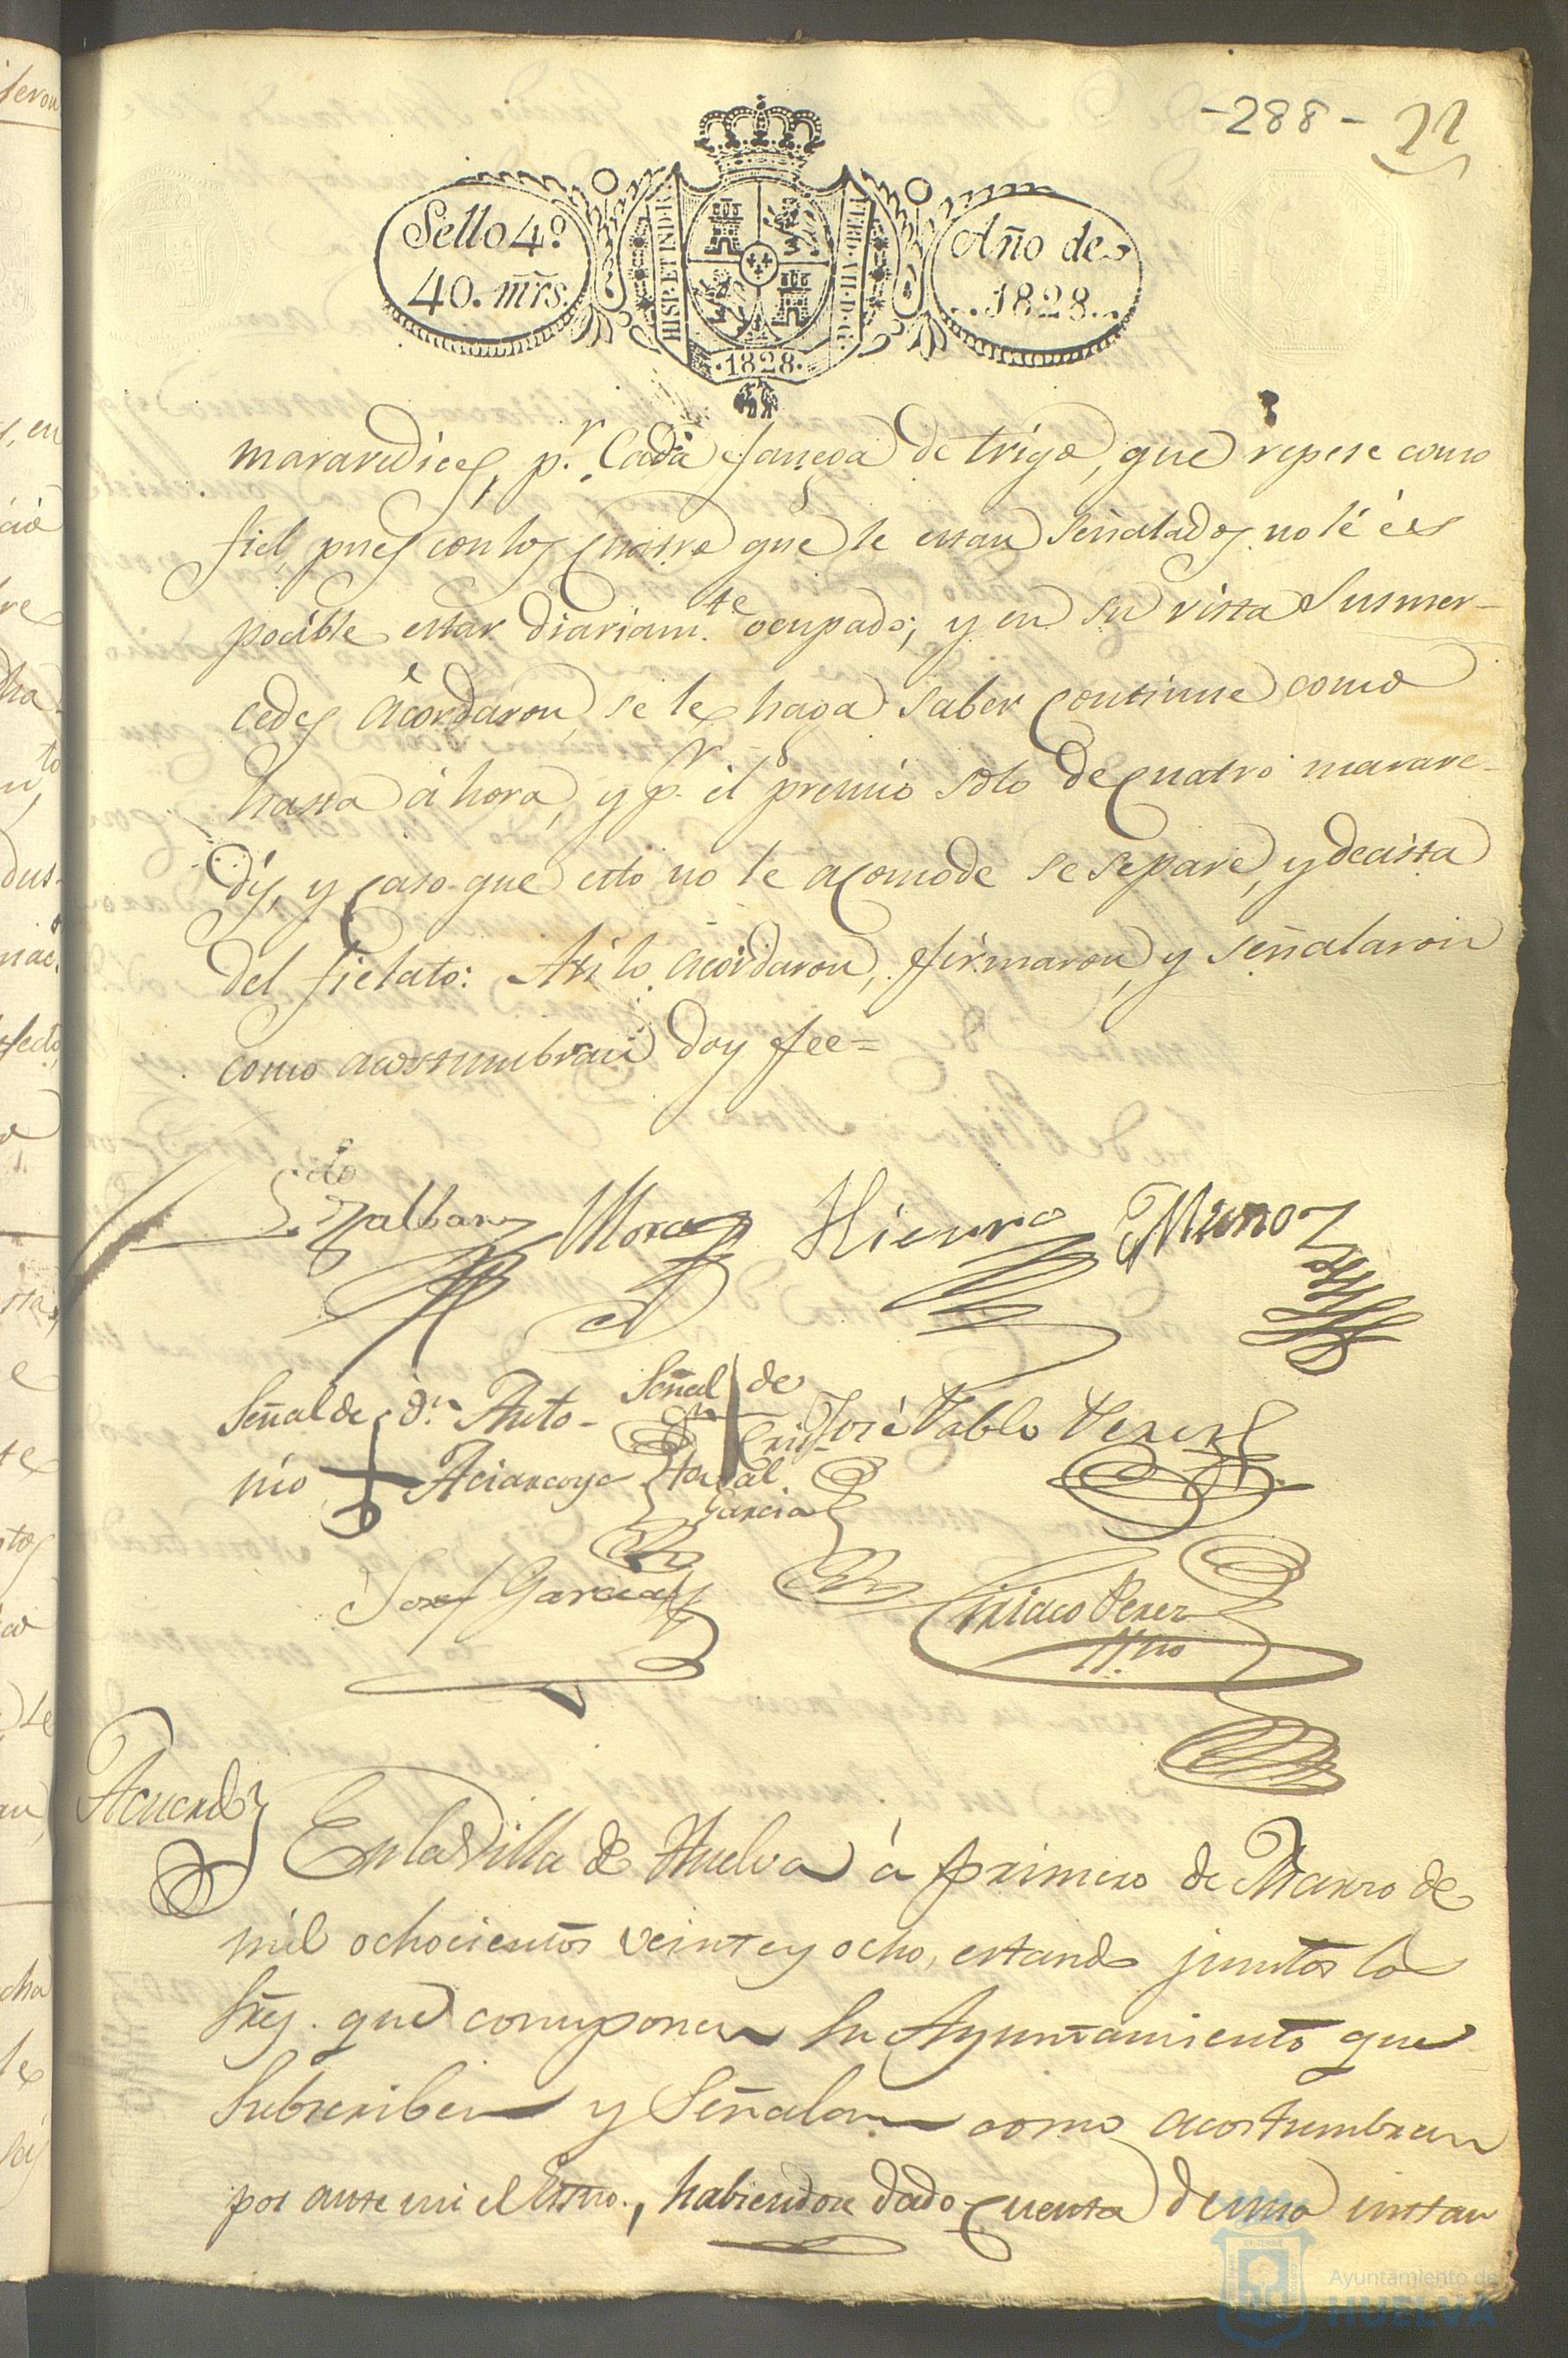 -288- 22
Sello 4º
40. mrs.
HISP. ET IND. R.
FERD. VII. D. G.
·1828·
Año de
..1828..
maravedices, p.r Cada fanega de trigo, que repese como
fiel, pues con los Cuatro que le estan señalados no lé és
pocible estar diariam.te ocupado; y en su vista Susmer-
cedes Acordaron, se le haga saber Continue como
hasta áhora, y p.r el premio solo de Cuatro marave-
dis, y Caso que esto no le acomode se separe, y decista
del fielato: Asi lo Acordaron, firmaron, y señalaron
como acostumbran doy fee=
L.do Zalbans Mora Hierro Munoz
Señal de d.n Anto-
nio Aciancoya
Señal de
Cris-
tobal
Garcia
José Pablo Perez
Josef Garcia
Ciriaco Perez
Acuerdo
En la Villa de Huelva á primero de Marzo de
mil ochocientos veinte y ocho, estando juntos los
Sres. que componen su Ayuntamiento que
Subscriben y Señalan como acostumbran
por ante mi el Essno., habiendose dado Cuenta de una instan
Ayuntamiento de
HUELVA